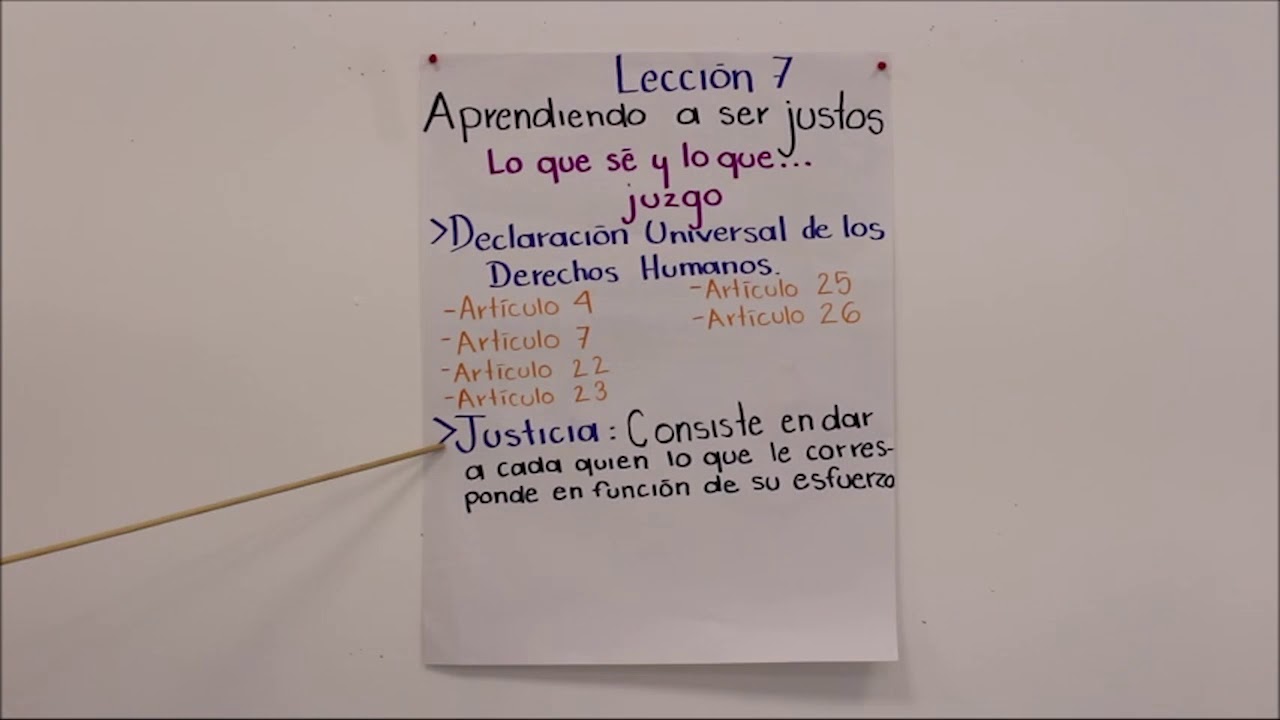 Lección 7
Aprendiendo a ser justos
Lo que sé y lo que...
juzgo
>Declaración Universal de los
Derechos Humanos.
-Artículo 4
-Artículo 7
-Artículo 22
-Artículo 23
-Artículo 25
-Artículo 26
>Justicia: Consiste en dar
a cada quien lo que le corres-
ponde en función de su esfuerzo